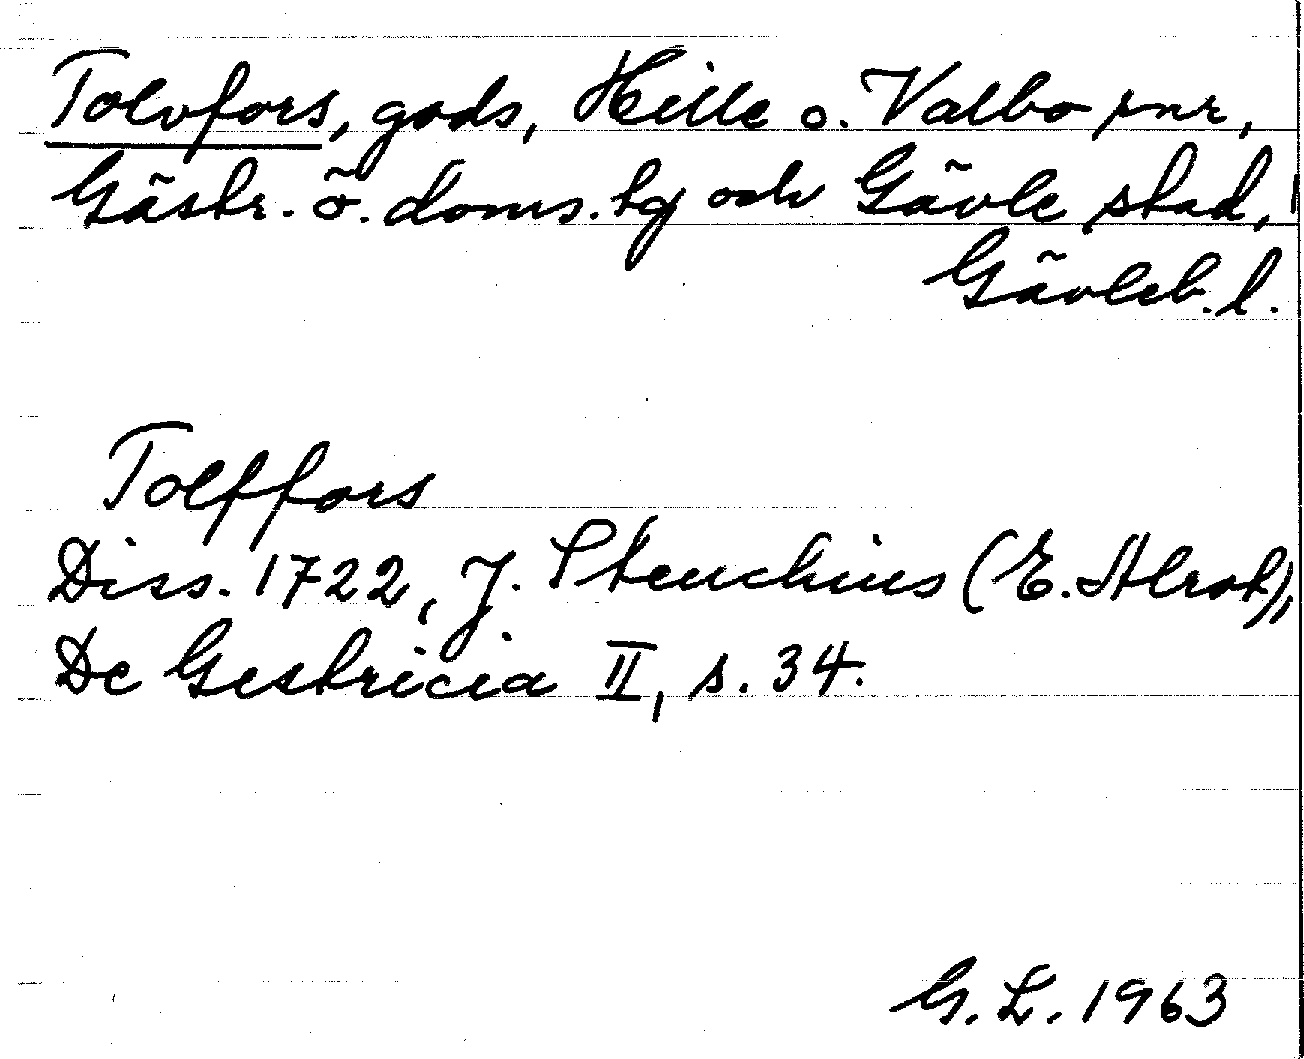 Tolvfors, gods, Hille o. Valbo snr,
Gästr. ö. doms. tg och Gävle stad,
Gävleb. l.
Tolffors
Diss. 1722, J. Steuchius (E. Alrot),
De Gestricia II, s. 34.
G. L. 1963